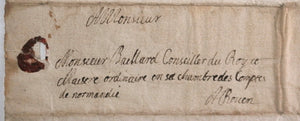 A Monsieur
Monsieur Baillard Conseiller du Roy et
Maistre ordinaire en sa chambre des Comptes
de normandie
A Rouen